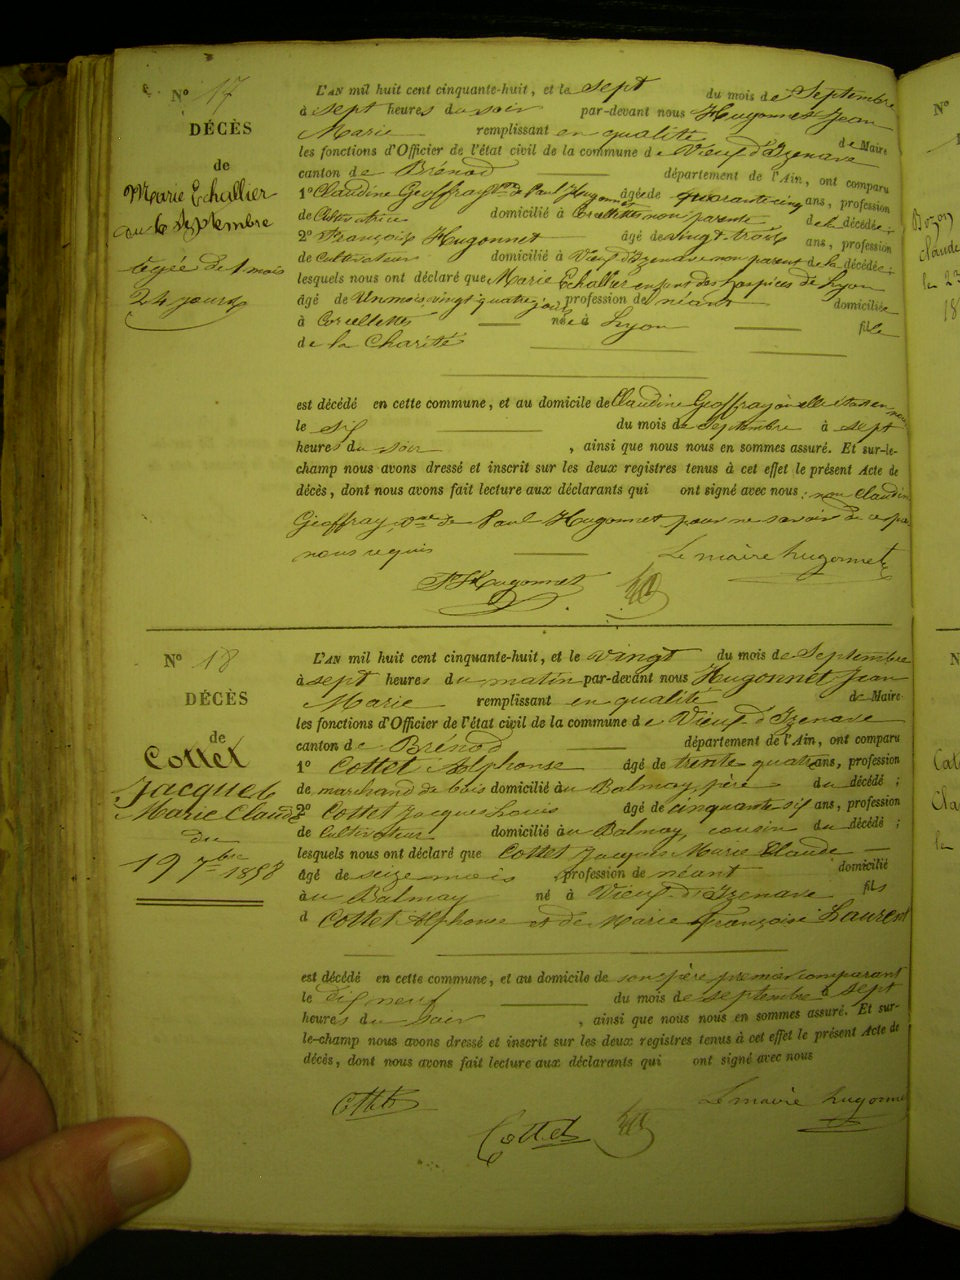 N° 17
DÉCÈS
de
Marie Echallier
au 6 Septembre
âgée de 1 mois
24 jours
L'AN mil huit cent cinquante-huit, et le sept du mois de Septembre
à sept heures du soir par-devant nous Hugonnet Jean
Marie remplissant en qualité de Maire
les fonctions d'Officier de l'état civil de la commune de Vieux d'Izenave
canton de Brénod département de l'Ain, ont comparu
1° Claudine Geoffray Vve de Paul Hugonnet âgée de quarante cinq ans, profession
de Cultivatrice domicilié à Corcelettes non parente de la décédée;
2° François Hugonnet âgé de vingt-trois ans, profession
de Cultivateur domicilié à Vieux d'Izenave non parent de la décédée;
lesquels nous ont déclaré que Marie Echallier enfant des hospices de Lyon
âgé de Un mois vingt quatre jours profession de néant domiciliée
à Corcelettes née à Lyon fille
de la Charité
est décédé en cette commune, et au domicile de Claudine Geoffray où elle était en
le six du mois de Septembre à sept
heures du soir , ainsi que nous nous en sommes assuré. Et sur-le-
champ nous avons dressé et inscrit sur les deux registres tenus à cet effet le présent Acte de
décès, dont nous avons fait lecture aux déclarants qui ont signé avec nous : non Claudine
Geoffray, Vve de Paul Hugonnet pour ne savoir de ce par
nous requis Le maire hugonnet
Hugonnet
N° 18
DÉCÈS
de
Cottet
Jacques
Marie Claude
du
19 7bre 1858
L'AN mil huit cent cinquante-huit, et le vingt du mois de Septembre
à sept heures du matin par-devant nous Hugonnet Jean
Marie remplissant en qualité de Maire
les fonctions d'Officier de l'état civil de la commune de Vieux d'Izenave
canton de Brénod département de l'Ain, ont comparu
1° Cottet Alphonse âgé de trente quatre ans, profession
de marchand de bois domicilié à u Balmay, père du décédé ;
2° Cottet Jacques Louis âgé de cinquante-six ans, profession
de Cultivateur domicilié à u Balmay, cousin du décédé ;
lesquels nous ont déclaré que Cottet Jacques Marie Claude
âgé de seize mois profession de néant domicilié
àu Balmay né à Vieux d'Izenave fils
d Cottet Alphonse et de Marie Françoise Laurent
est décédé en cette commune, et au domicile de son père premier comparant
le dix neuf du mois de septembre à sept
heures du soir , ainsi que nous nous en sommes assuré. Et sur-
le-champ nous avons dressé et inscrit sur les deux registres tenus à cet effet le présent Acte de
décès, dont nous avons fait lecture aux déclarants qui ont signé avec nous
Cottet Le maire hugonnet
Cottet
N°
Bozon
Claude
le 23
18
N